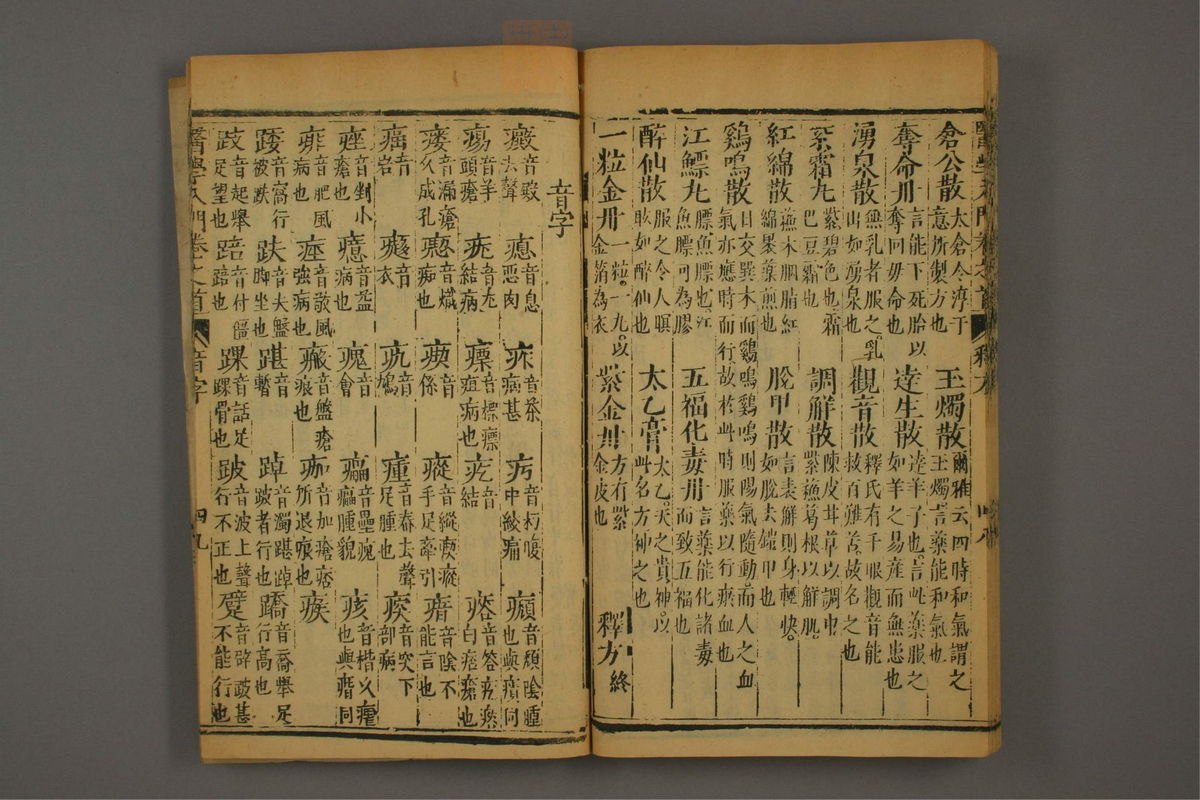 倉公散 太倉令淳于意所製方也 玉燭散 爾雅云四時和氣謂之玉燭言藥能和氣也
奪命丹 言能下死胎以奪回母命也 達生散 達羊子也言此藥服之如羊之易產而無患也
湧泉散 無乳者服之乳出如湧泉也 觀音散 釋氏有千眼觀音能救百難苦故名之也
紫霜丸 紫碧色也霜巴豆霜也 調解散 陳皮甘草以調中紫蘇葛根以解肌
紅綿散 蘇木胭脂紅綿裹藥煎也 脫甲散 言表解則身輕快如脫去鎧甲也
鷄鳴散 日交巽木而鷄鳴鷄鳴則陽氣隨動而人之血氣亦應時而行故於此時服藥以行瘀血也
江鰾丸 鰾魚鰾也江魚鰾可為膠 五福化毒丹 言藥能化諸毒而致五福也
醉仙散 服之令人瞑眩如醉仙也 太乙膏 太乙天之貴神以此名方神之也
一粒金丹 一粒一丸以金箔為衣 紫金丹 方有紫金皮也 釋方終
醫學入門卷之首 釋方 四八
音字
癥 音殿去聲 瘜 音息惡肉 㾒 音茶病甚 疞 音朽腹中絞痛 㿗 音頹陰腫也與㿗同
瘍 音羊頭瘡 疣 音尤結病 瘭 音標瘭疽病也 疙 音結 瘩 音答疙瘩白瘡也
瘻 音漏瘡久成孔 音熾痴也 音係 瘲 音縱瘈瘲手足牽引 瘖 音陰不能言也
音岩 音衣 音鳩 㾽 音春去聲足腫也 音突下部病
痤 音剉小瘡也 音孟病也 瘣 音會 音壘痕腫貌 痎 音楷久瘧也與痎同
痱 音肥風病也 痙 音敬風強病也 瘢 音盤瘡痕也 痂 音加瘡痞所退痕也 瘊
踒 音窩行被蹶 趺 音夫盤脚坐也 踸 音暫 踔 音濁踸踔跛者行也 蹻 音喬舉足行高也
跂 音起舉足望也 踣 音付僵踣也 踝 音話足踝骨也 跛 音波上聲行不正也 躄 音辟跛甚不能行也
醫學入門卷之首 音字 四九